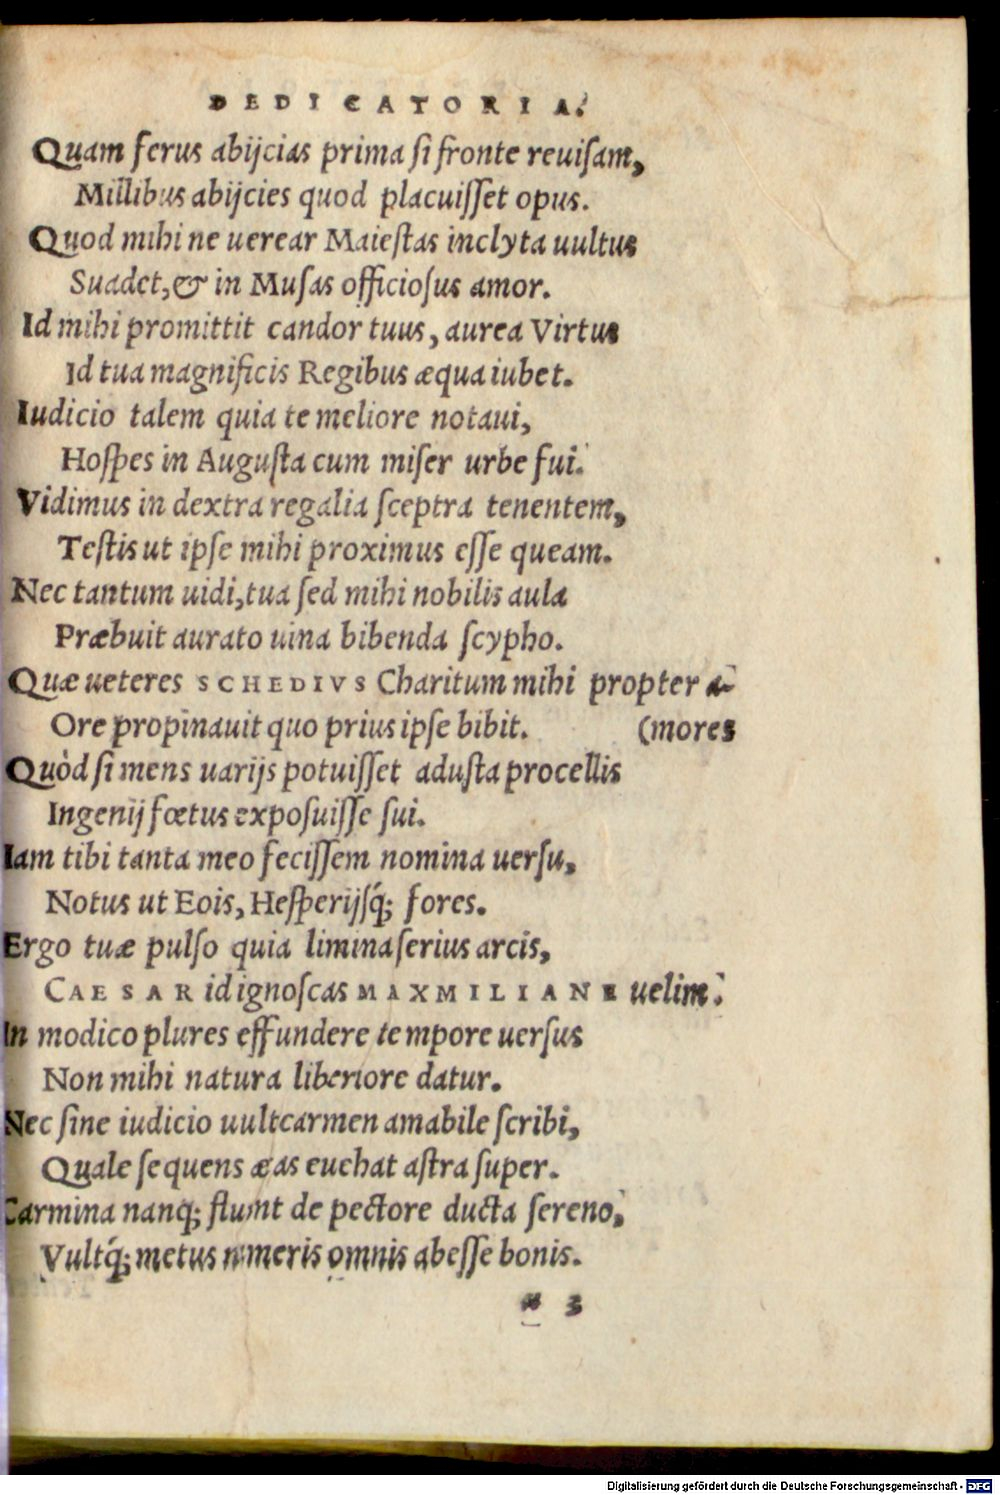 DEDICATORIA.
Quam ferus abijcias prima ſi fronte reuiſam,
Millibus abijcies quod placuiſſet opus.
Quod mihi ne uerear Maieſtas inclyta uultus
Suadet, & in Muſas officioſus amor.
Id mihi promittit candor tuus, aurea Virtus
Id tua magnificis Regibus æqua iubet.
Iudicio talem quia te meliore notaui,
Hoſpes in Auguſta cum miſer urbe fui.
Vidimus in dextra regalia ſceptra tenentem,
Teſtis ut ipſe mihi proximus eſſe queam.
Nec tantum uidi, tua ſed mihi nobilis aula
Præbuit aurato uina bibenda ſcypho.
Quæ ueteres SCHEDIVS Charitum mihi propter a-
Ore propinauit quo prius ipſe bibit. (mores
Quòd ſi mens uarijs potuiſſet aduſta procellis
Ingenij fœtus expoſuiſſe ſui.
Iam tibi tanta meo feciſſem nomina uerſu,
Notus ut Eois, Heſperijſq́; fores.
Ergo tuæ pulſo quia limina ſerius arcis,
CAESAR id ignoſcas MAXMILIANE uelim.
In modico plures effundere tempore uerſus
Non mihi natura liberiore datur.
Nec ſine iudicio uult carmen amabile ſcribi,
Quale ſequens æas euehat aſtra ſuper.
Carmina nanq; fluunt de pectore ducta ſereno,
Vultq́; metus numeris omnis abeſſe bonis.
* 3
Digitalisierung gefördert durch die Deutsche Forschungsgemeinschaft - DFG